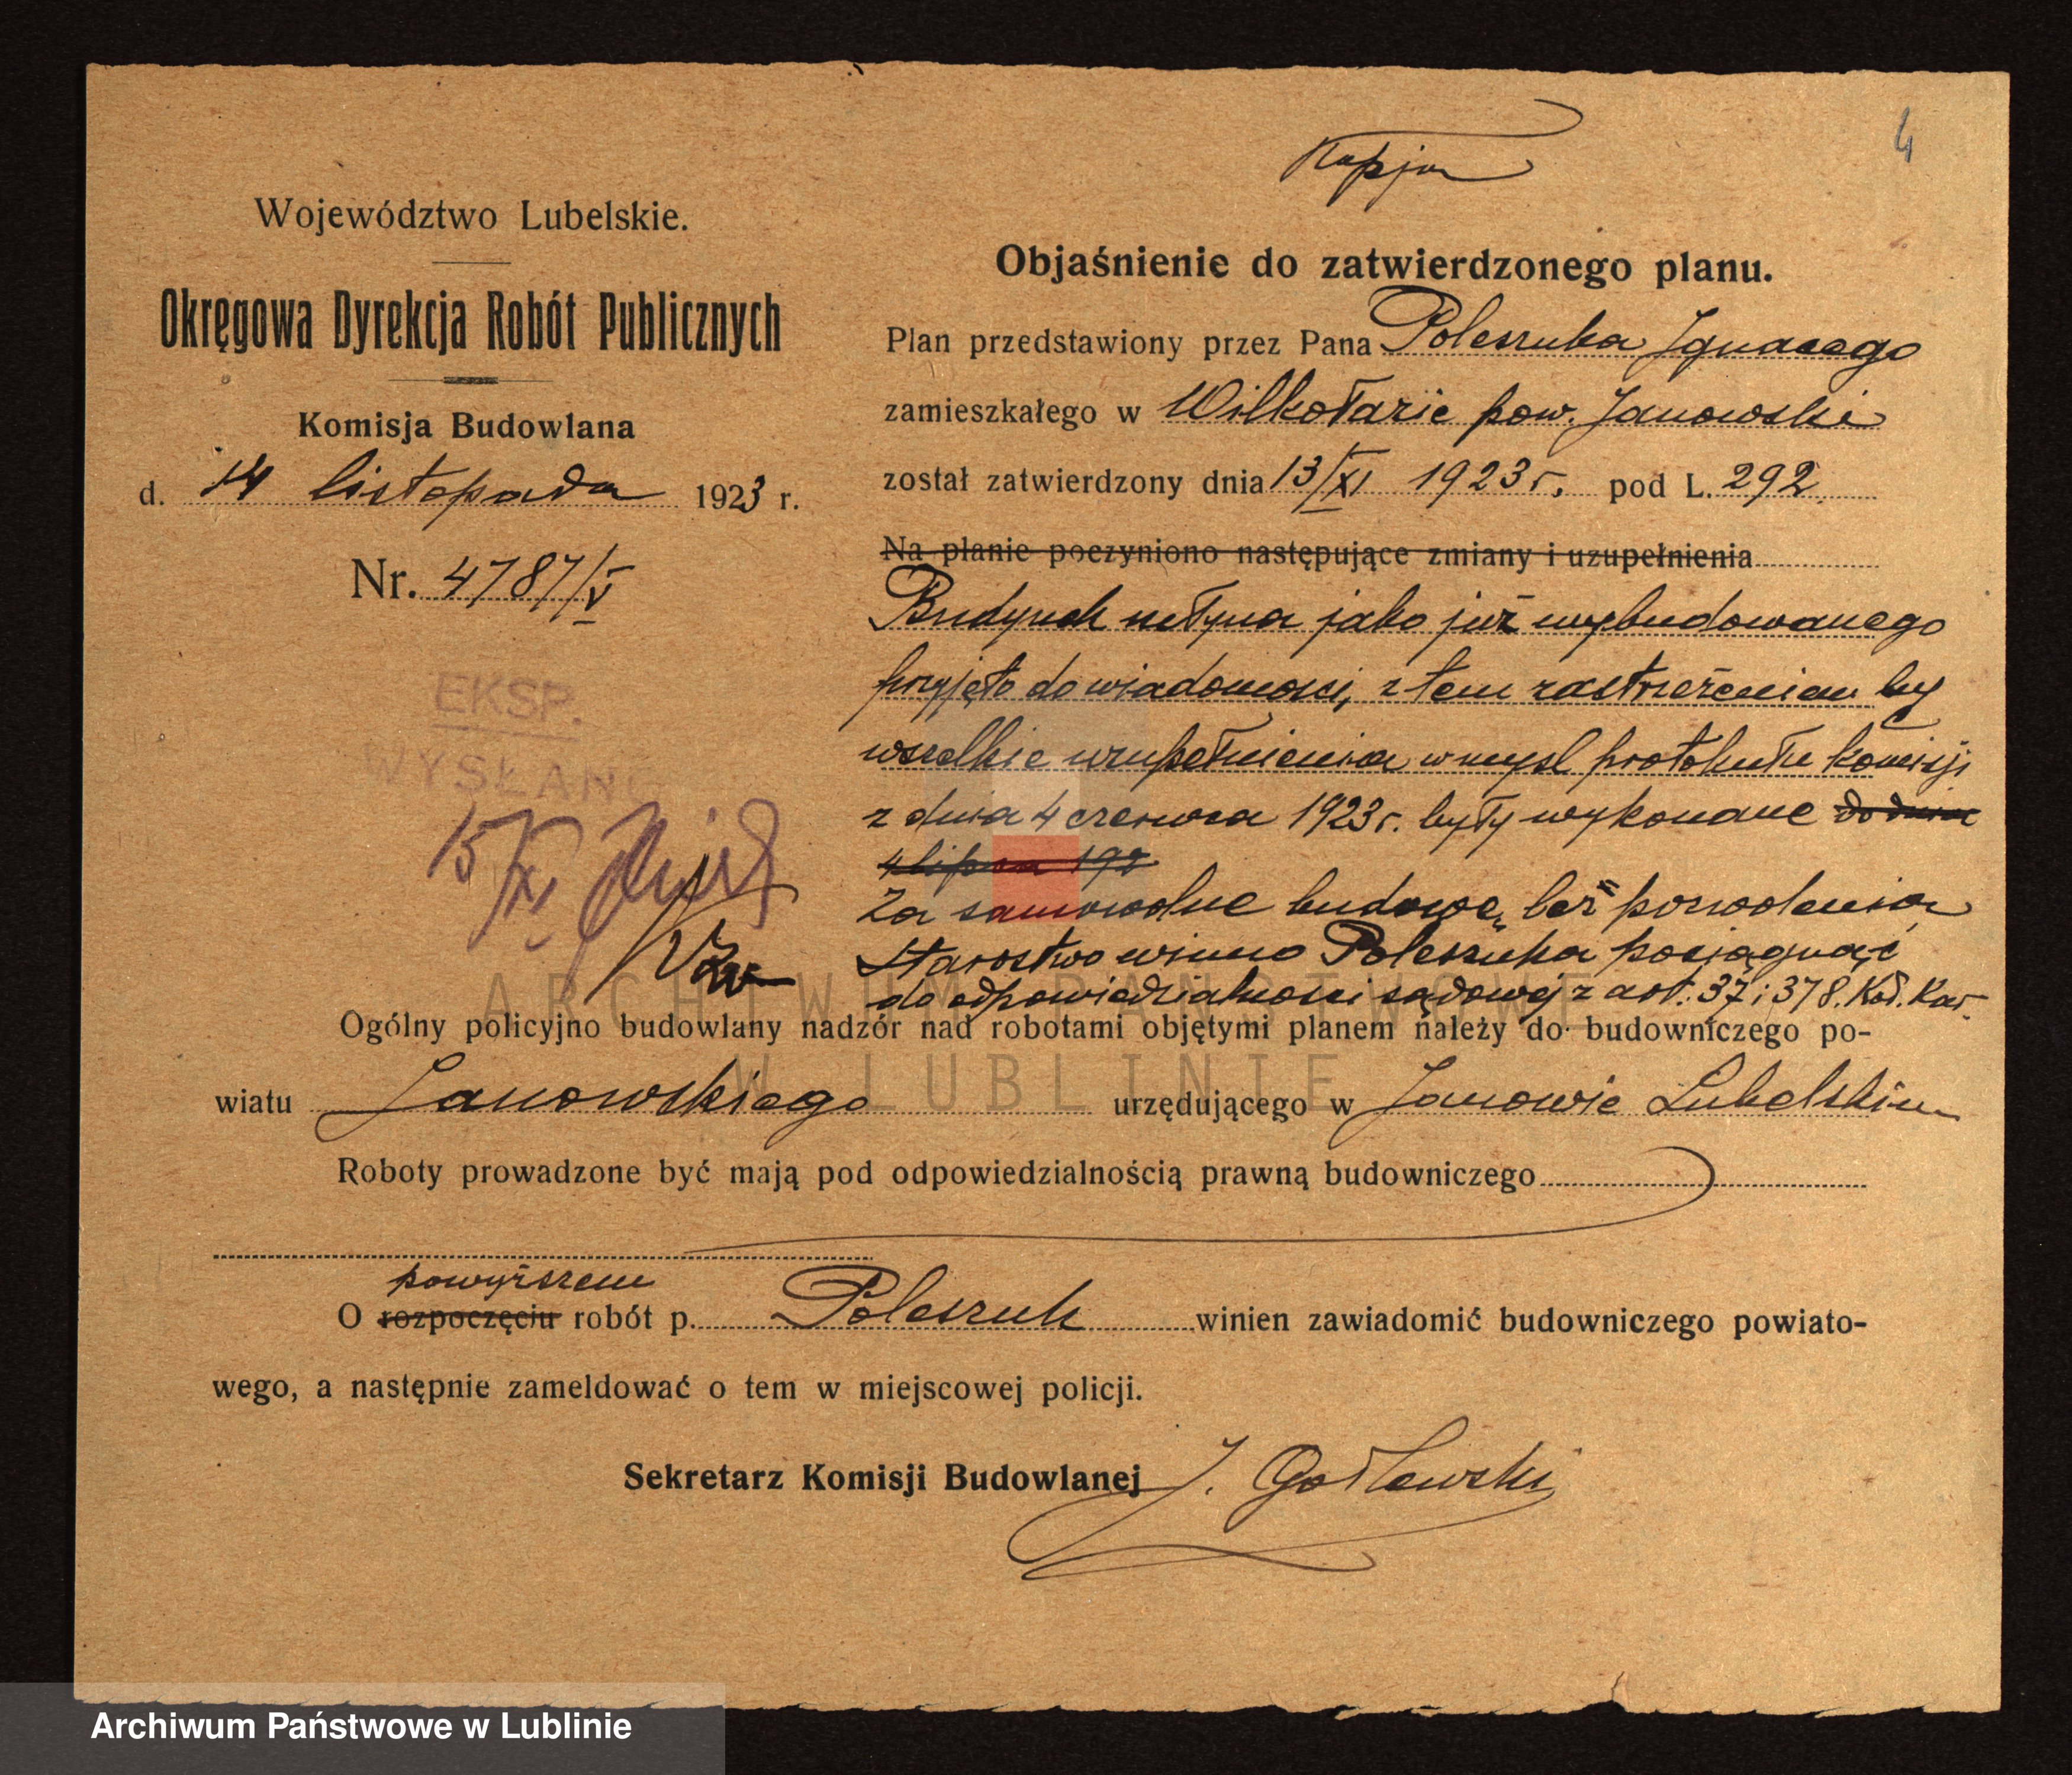 4
Kopja
Województwo Lubelskie.
Okręgowa Dyrekcja Robót Publicznych
Komisja Budowlana
d. 14 listopada 1923 r.
Nr. 4787/V
EKSP.
WYSŁANO
15/XI
Objaśnienie do zatwierdzonego planu.
Plan przedstawiony przez Pana Poleszuka Ignacego
zamieszkałego w Wilkołazie pow. Janowski
został zatwierdzony dnia 13/XI 1923 r. pod L. 292
Na planie poczyniono następujące zmiany i uzupełnienia
Budynek młyna jako już wybudowanego
przyjęto do wiadomości, z tem zastrzeżeniem by
wszelkie uzupełnienia w myśl protokułu komisji
z dnia 4 czerwca 1923 r. były wykonane do dnia
4 lipca 192
Za samowolne budowę bez pozwolenia
Starostwo winno Poleszuka pociągnąć
do odpowiedzialności sądowej z art. 37 i 378. Kod. Kar.
Ogólny policyjno budowlany nadzór nad robotami objętymi planem należy do budowniczego po-
wiatu Janowskiego urzędującego w Janowie Lubelskim
Roboty prowadzone być mają pod odpowiedzialnością prawną budowniczego
powyższem
O rozpoczęciu robót p. Poleszuk winien zawiadomić budowniczego powiato-
wego, a następnie zameldować o tem w miejscowej policji.
Sekretarz Komisji Budowlanej J. Godlewski
ARCHIWUM PAŃSTWOWE
W LUBLINIE
Archiwum Państwowe w Lublinie